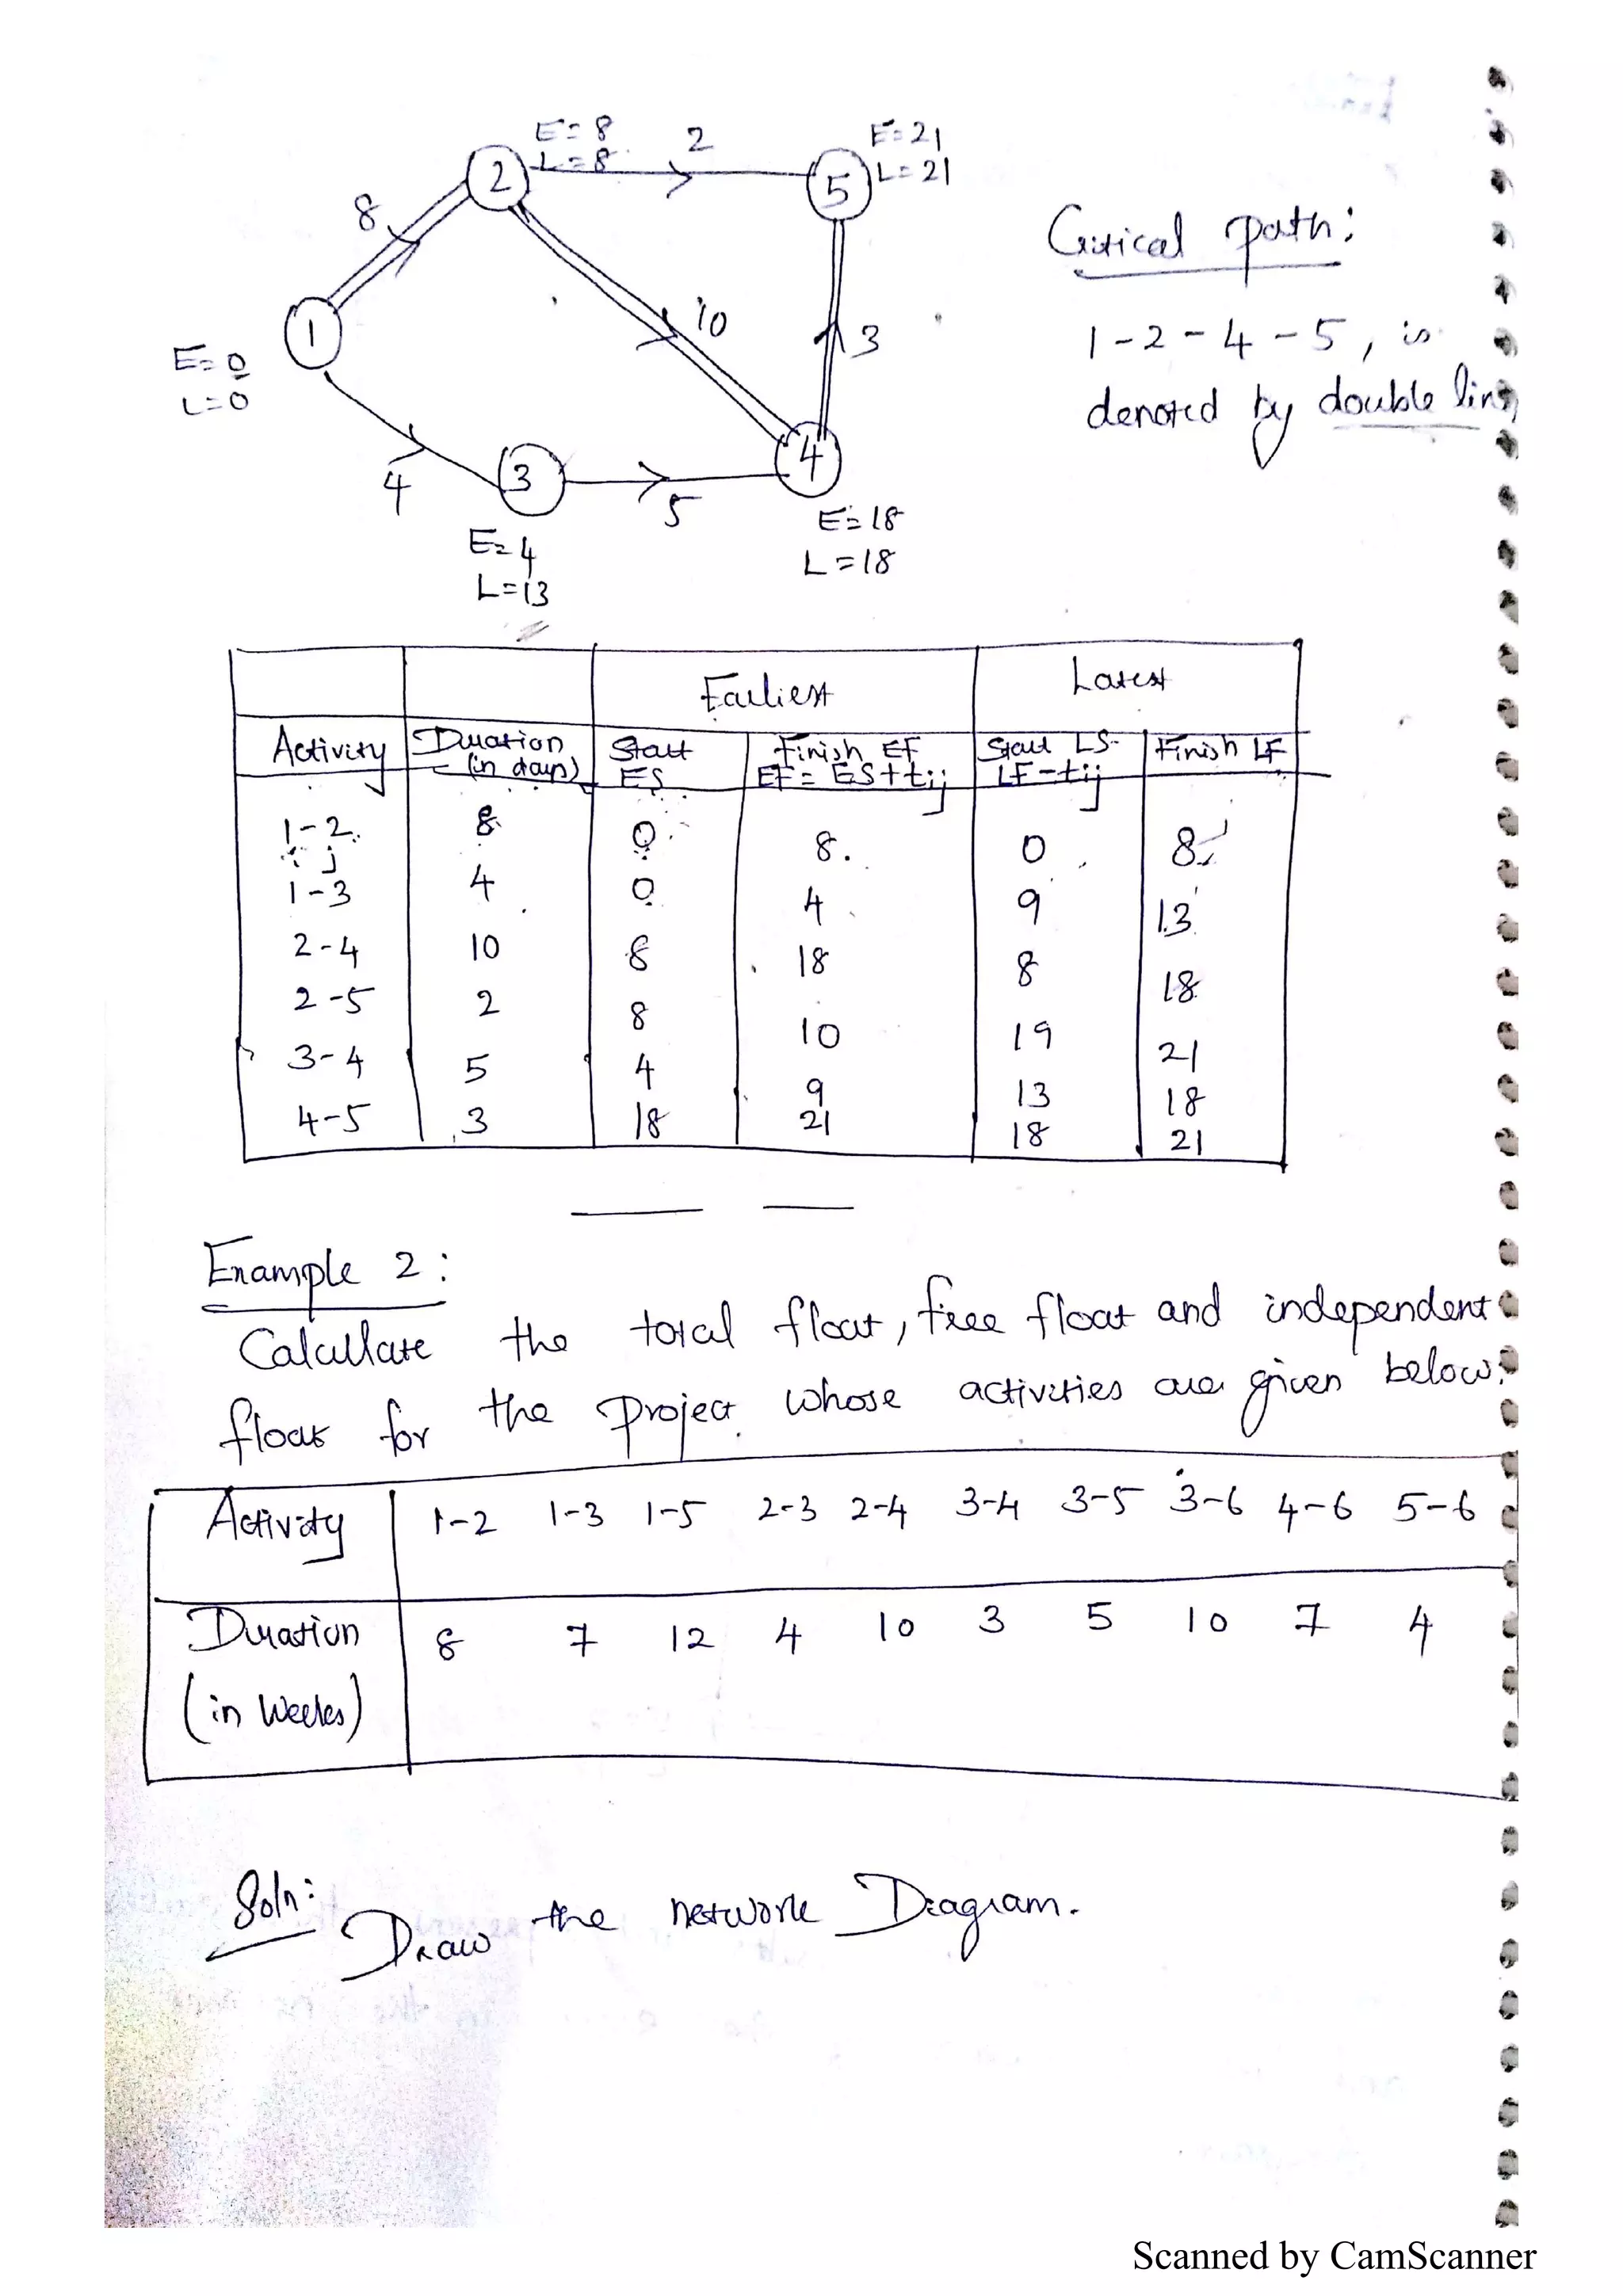 E=8
L=8
2
E=21
L=21
2
5
8
Critical path:
1
10
3
1-2-4-5, is
E=0
L=0
denoted by double line
4
3
5
4
E=4
L=13
E=18
L=18
Earliest Latest
Activity Duration (in days) Start ES Finish EF EF= ES+tij Start LS- LF-tij Finish LF
1-2 8 0 8. 0 8
i j
1-3 4 0 4 9 13
2-4 10 8 18 8 18
2-5 2 8 10 19 21
3-4 5 4 9 13 18
4-5 3 18 21 18 21
Example 2:
Calculate the total float, free float and independent
float for the project whose activities are given below:
Activity 1-2 1-3 1-5 2-3 2-4 3-4 3-5 3-6 4-6 5-6
Duration 8 7 12 4 10 3 5 10 7 4
(in weeks)
Soln:
Draw the network Diagram.
Scanned by CamScanner